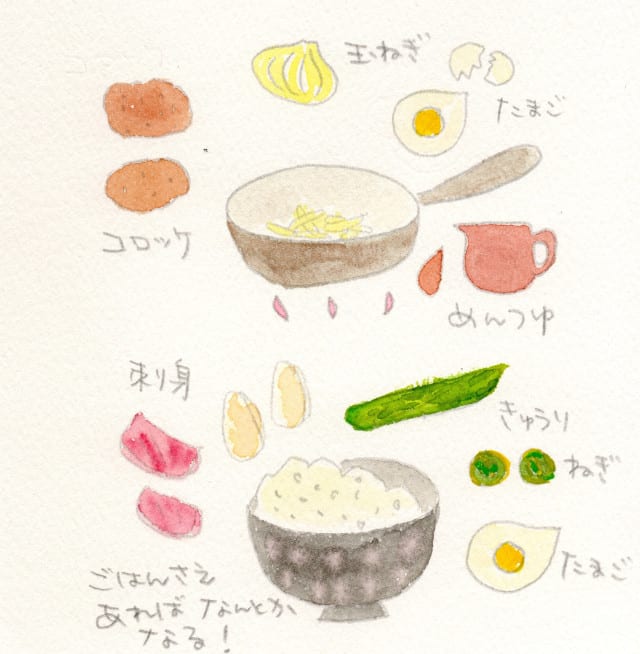 玉ねぎ
たまご
コロッケ
めんつゆ
刺り身
きゅうり
ねぎ
たまご
ごはんさえ
あれば なんとか
なる!